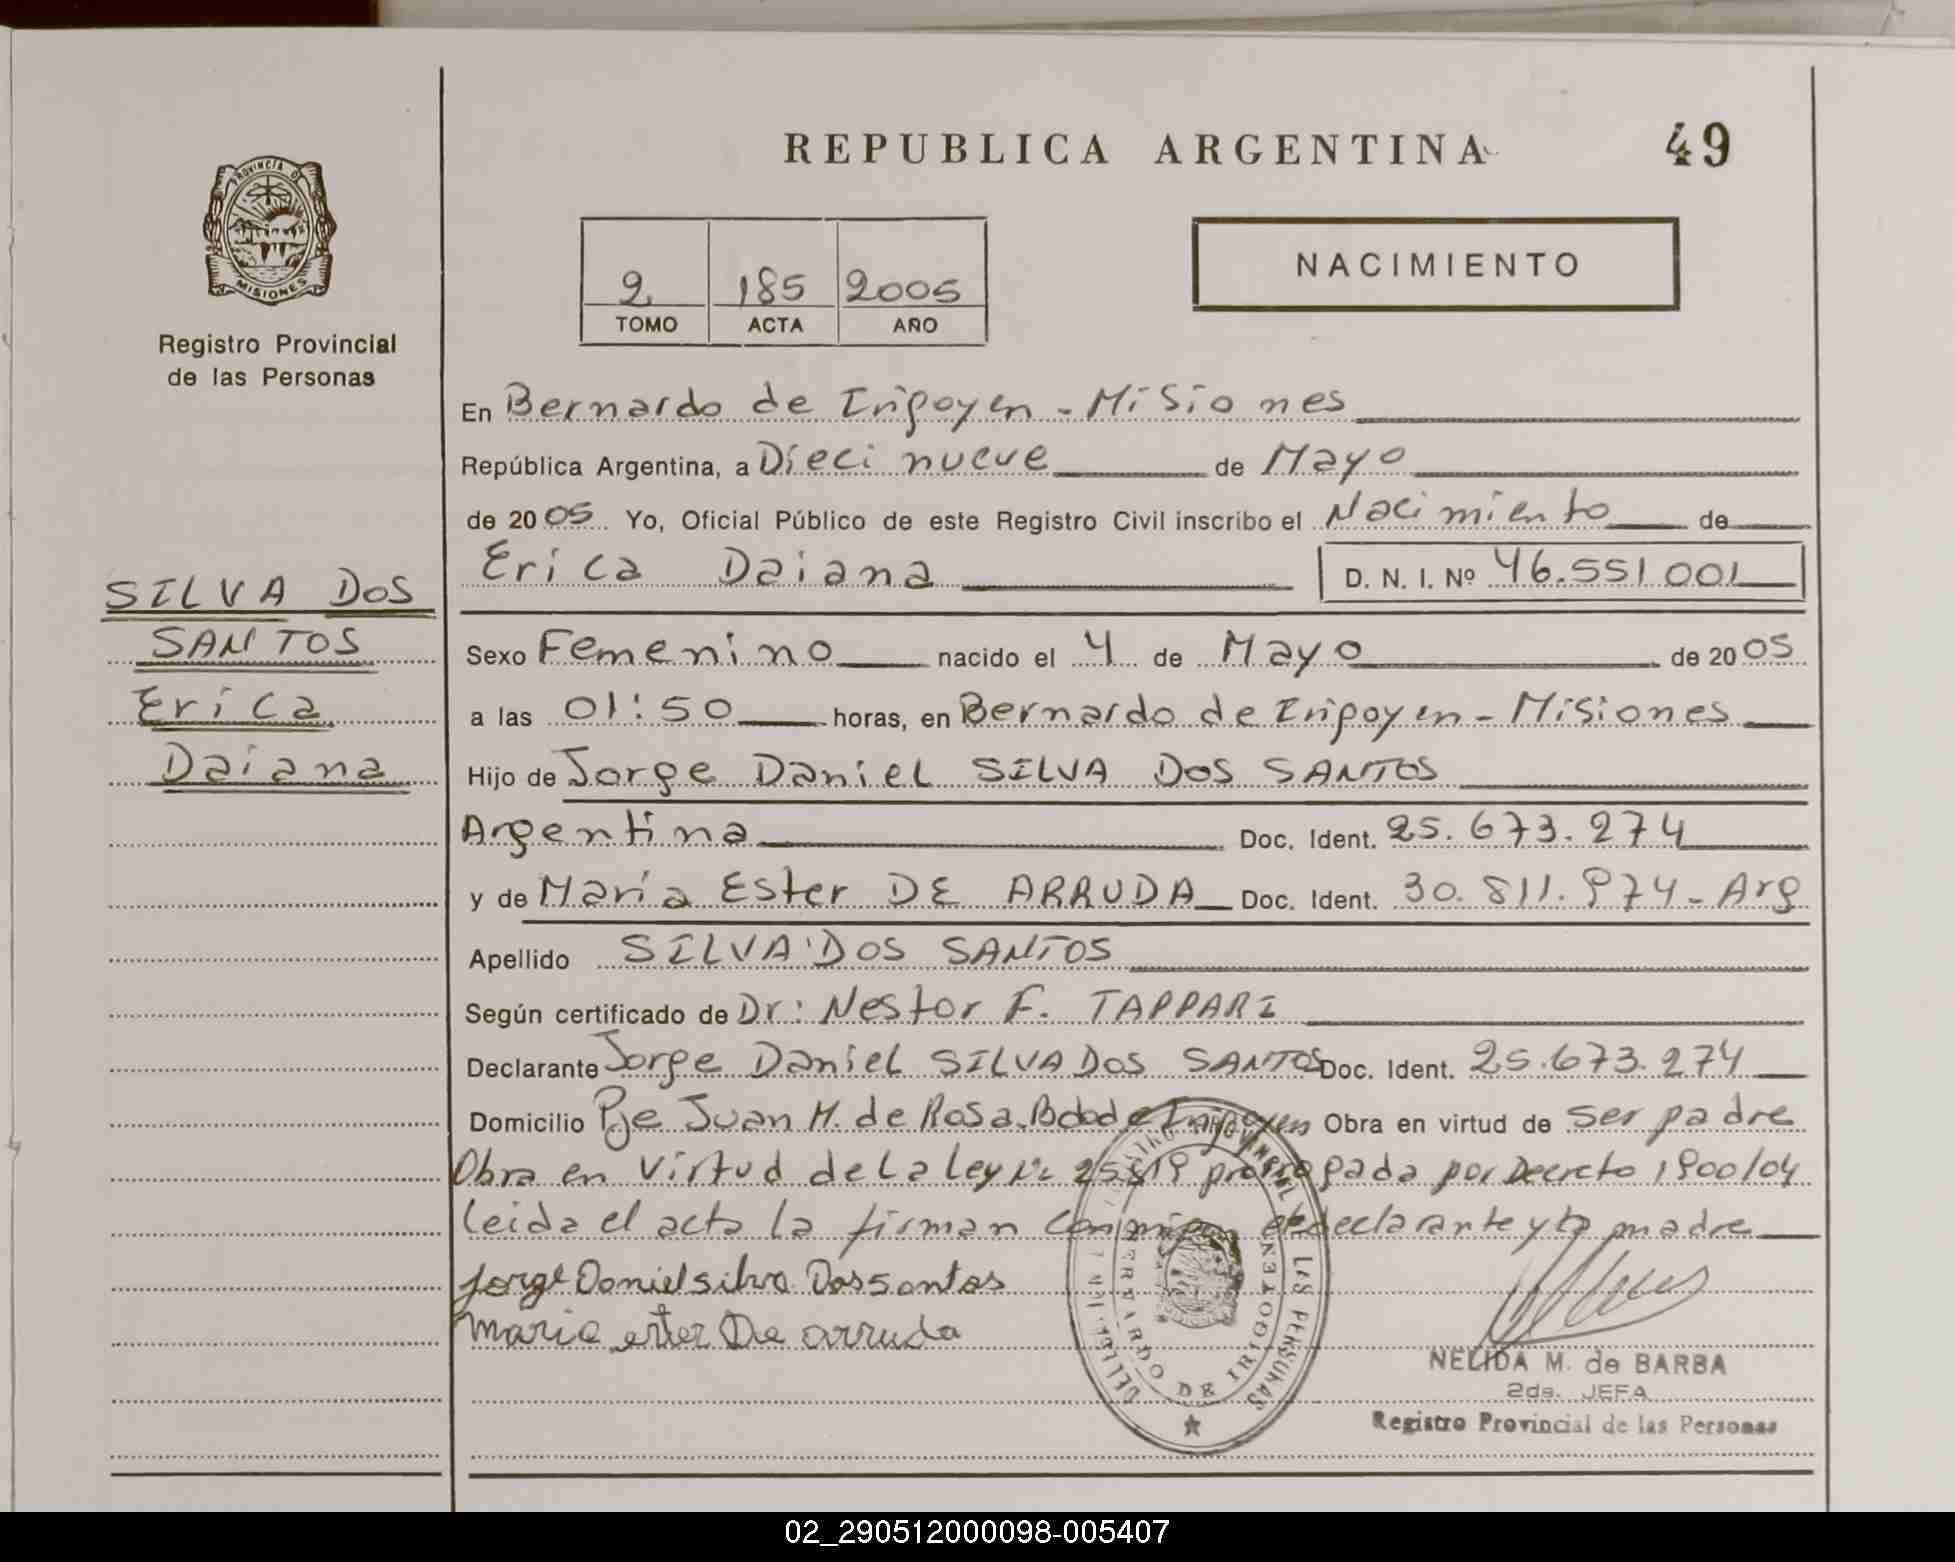 REPUBLICA ARGENTINA 49
PROVINCIA DE
MISIONES
Registro Provincial
de las Personas
2 185 2005
TOMO ACTA AÑO
NACIMIENTO
SILVA DOS
SANTOS
Erica
Daiana
En Bernardo de Irigoyen - Misiones
República Argentina, a Dieci nueve de Mayo
de 2005 Yo, Oficial Público de este Registro Civil inscribo el Nacimiento de
Erica Daiana D. N. I. Nº 46.551.001
Sexo Femenino nacido el 4 de Mayo de 2005
a las 01:50 horas, en Bernardo de Irigoyen - Misiones
Hijo de Jorge Daniel SILVA DOS SANTOS
Argentina Doc. Ident. 25.673.274
y de Maria Ester DE ARRUDA Doc. Ident. 30.811.974 - Arg
Apellido SILVA DOS SANTOS
Según certificado de Dr: Nestor F. TAPPARI
Declarante Jorge Daniel SILVA DOS SANTOS Doc. Ident. 25.673.274
Domicilio Pje Juan M. de Rosa. Bdo de Irigoyen Obra en virtud de ser padre
Obra en virtud de la ley Nº 25819 prorrogada por Decreto 1900/04
leida el acta la firman conmigo el declarante y la madre
Jorge Daniel silva Dos santos
Maria ester De arruda
BERNARDO DE IRIGOYEN
NELIDA M. de BARBA
2da. JEFA
Registro Provincial de las Personas
02_290512000098-005407